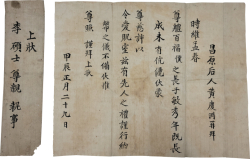 昌原后人黃度丙再拜
時維孟春
尊體百福僕之長子敏秀年旣長
成未有伉儷伏蒙
尊慈許以
令愛貺室玆有先人之禮謹行納
幣之儀不備伏惟
尊照謹拜上狀
甲辰正月二十九日
上狀
李碩士 尊親 執事